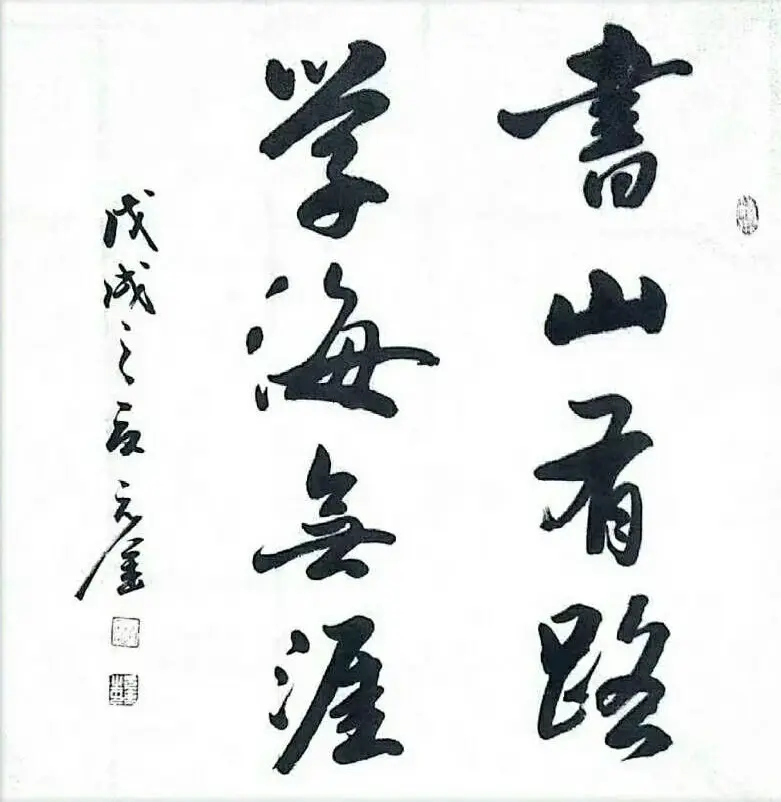 書山有路
学海無涯
戊戌之夏元金